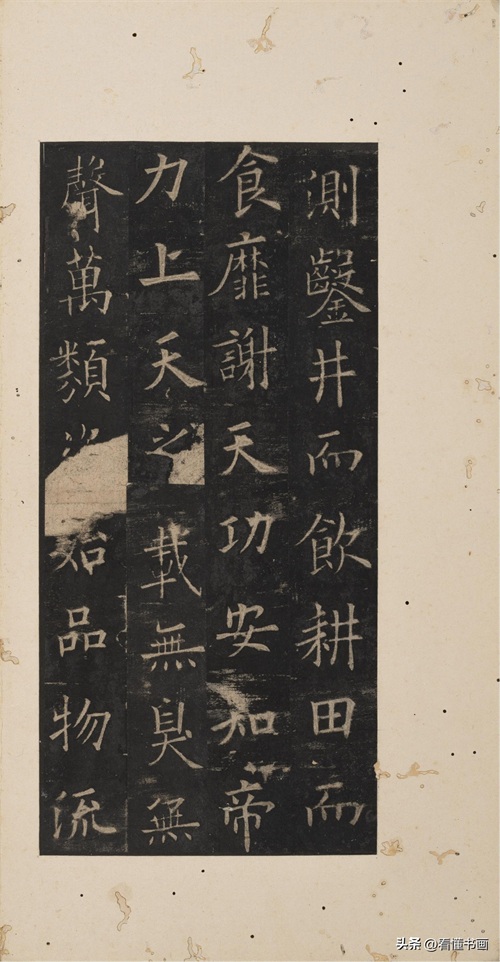 測鑿井而飲耕田而
食靡謝天功安知帝
力上天之載無臭無
聲萬類始品物流
头条 @看懂书画